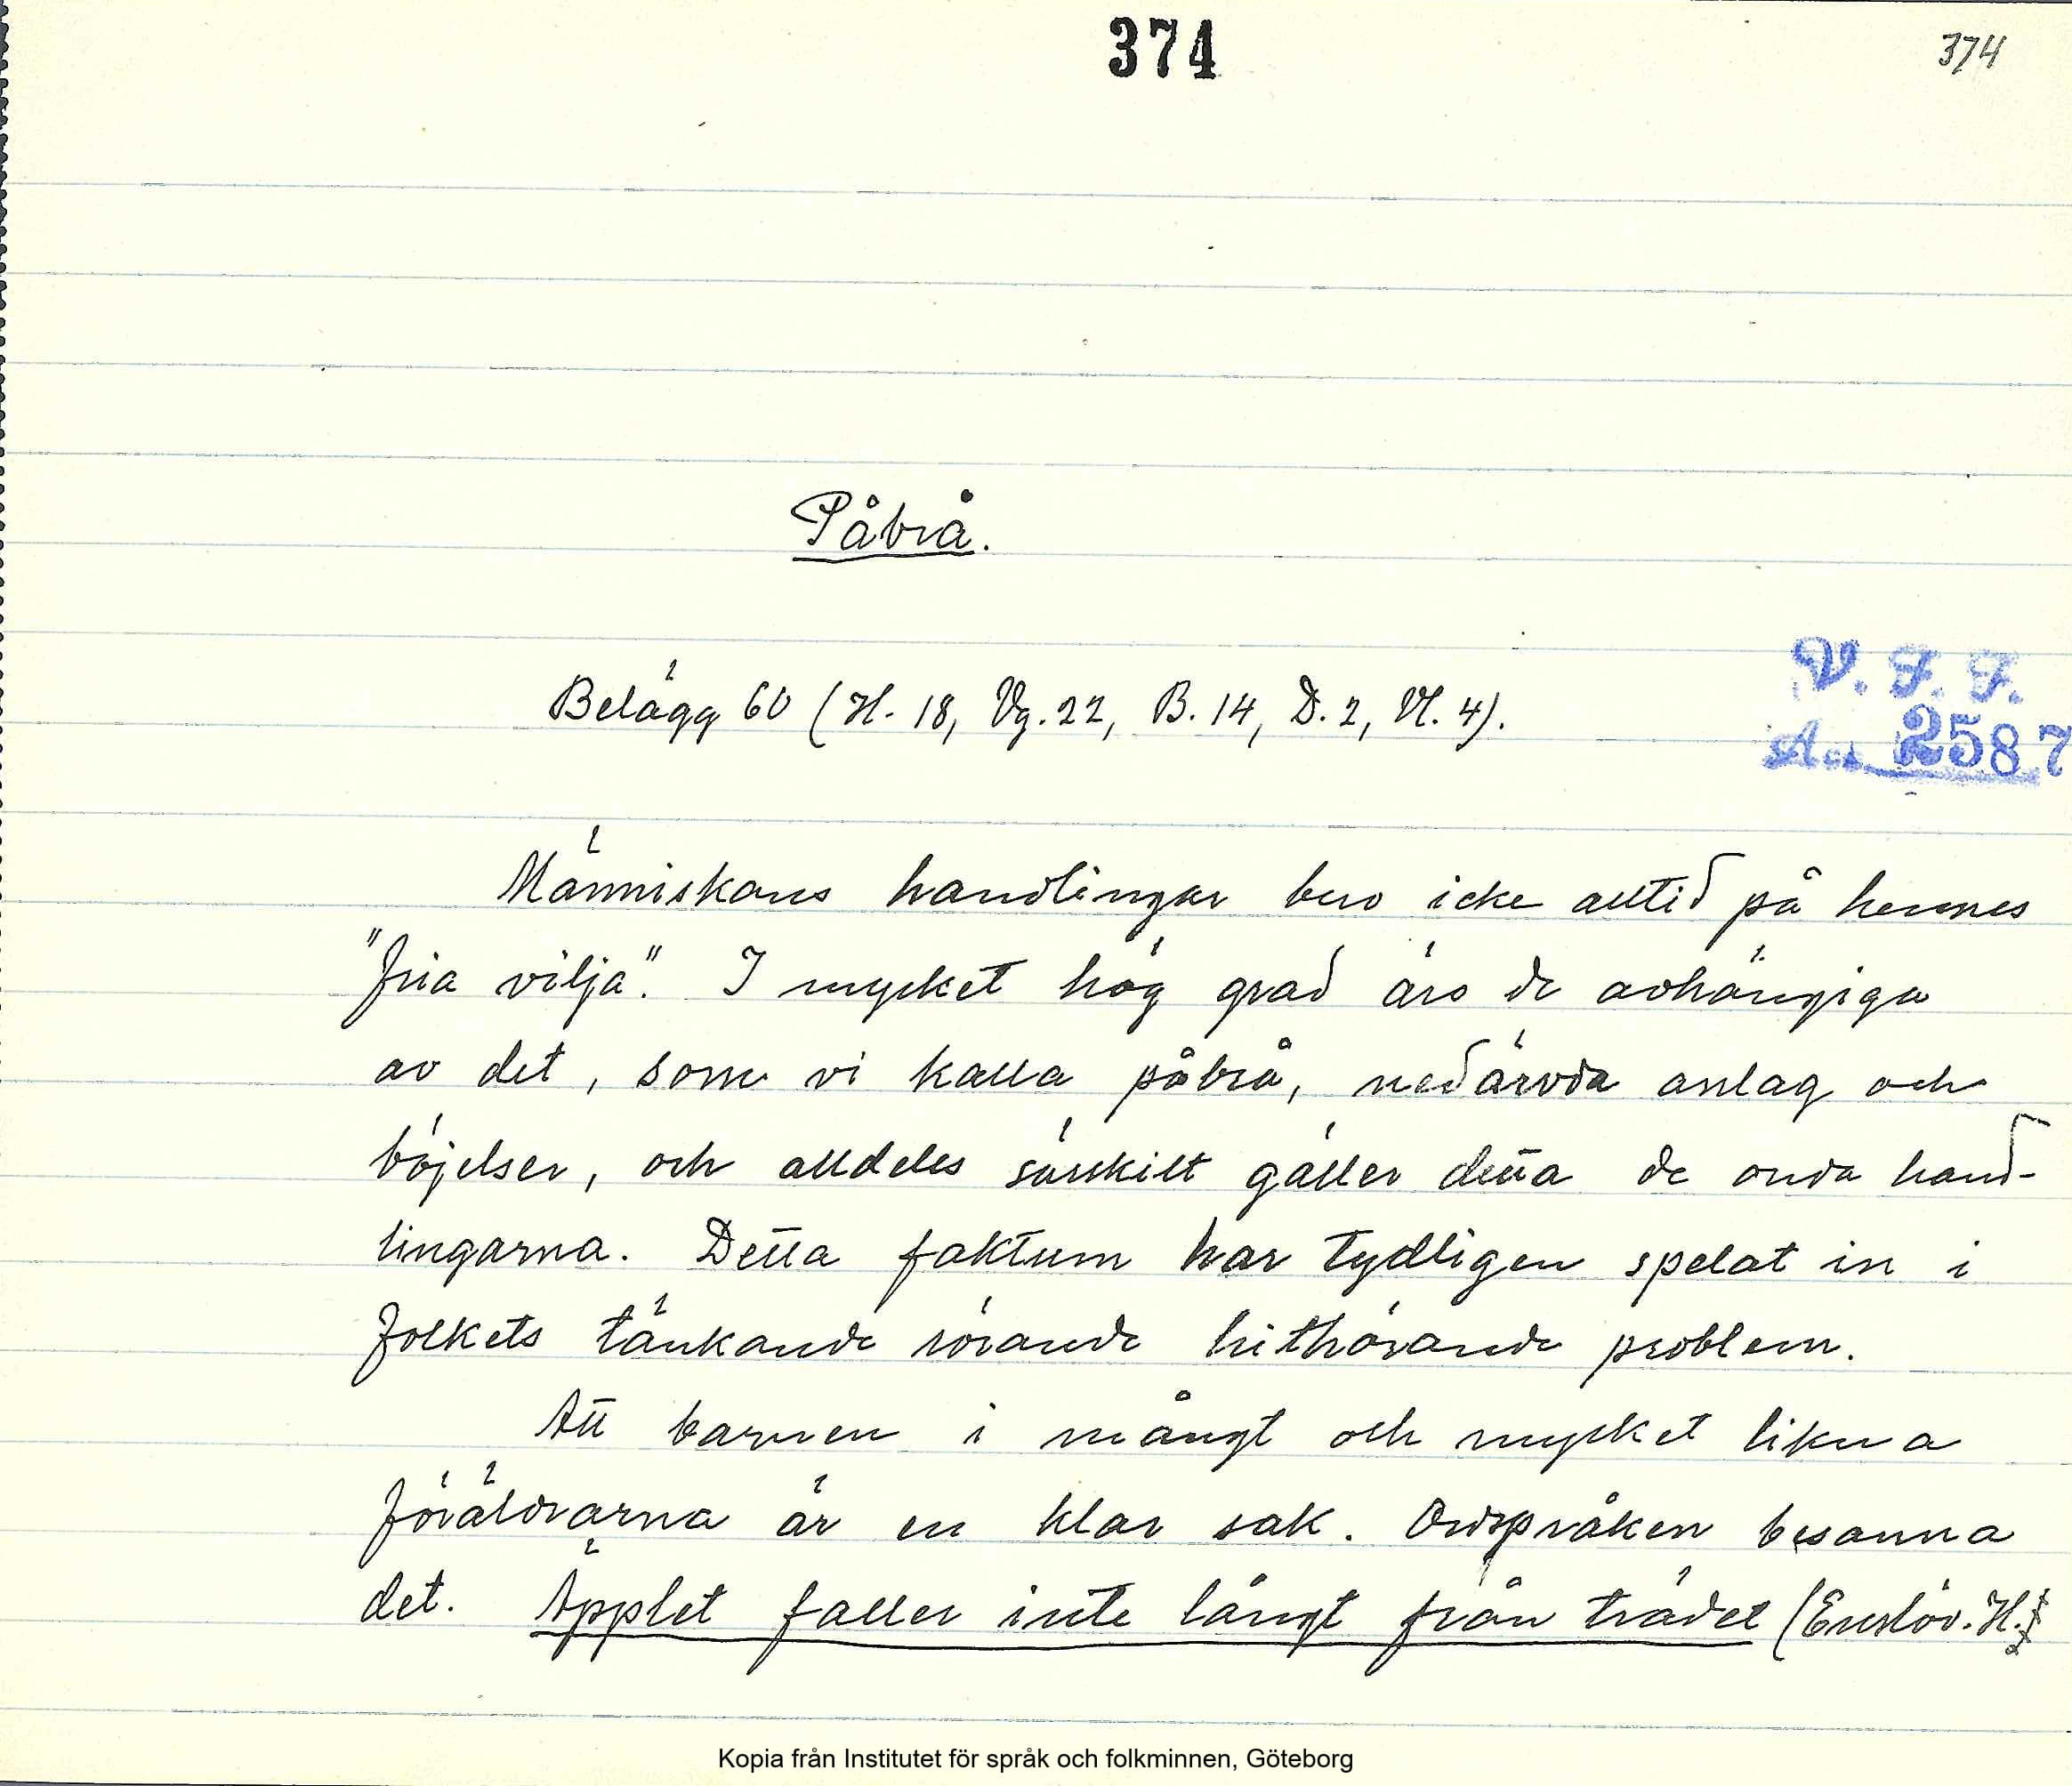 374
374
Påbrå.
Belägg 60 (H. 18, Vg. 22, B. 14, D. 2, Vl. 4).
V. F. F.
Acc. 2587
Människans handlingar bero icke alltid på hennes
"fria vilja". I mycket hög grad äro de avhängiga
av det, som vi kalla påbrå, nedärvda anlag och
böjelser, och alldeles särskilt gäller detta de onda hand-
lingarna. Detta faktum har tydligen spelat in i
folkets tänkande rörande hithörande problem.
Att barnen i mångt och mycket likna
föräldrarna är en klar sak. Ordspråken besanna
det. Äpplet faller inte långt från trädet (Enslöv. H.
Kopia från Institutet för språk och folkminnen, Göteborg